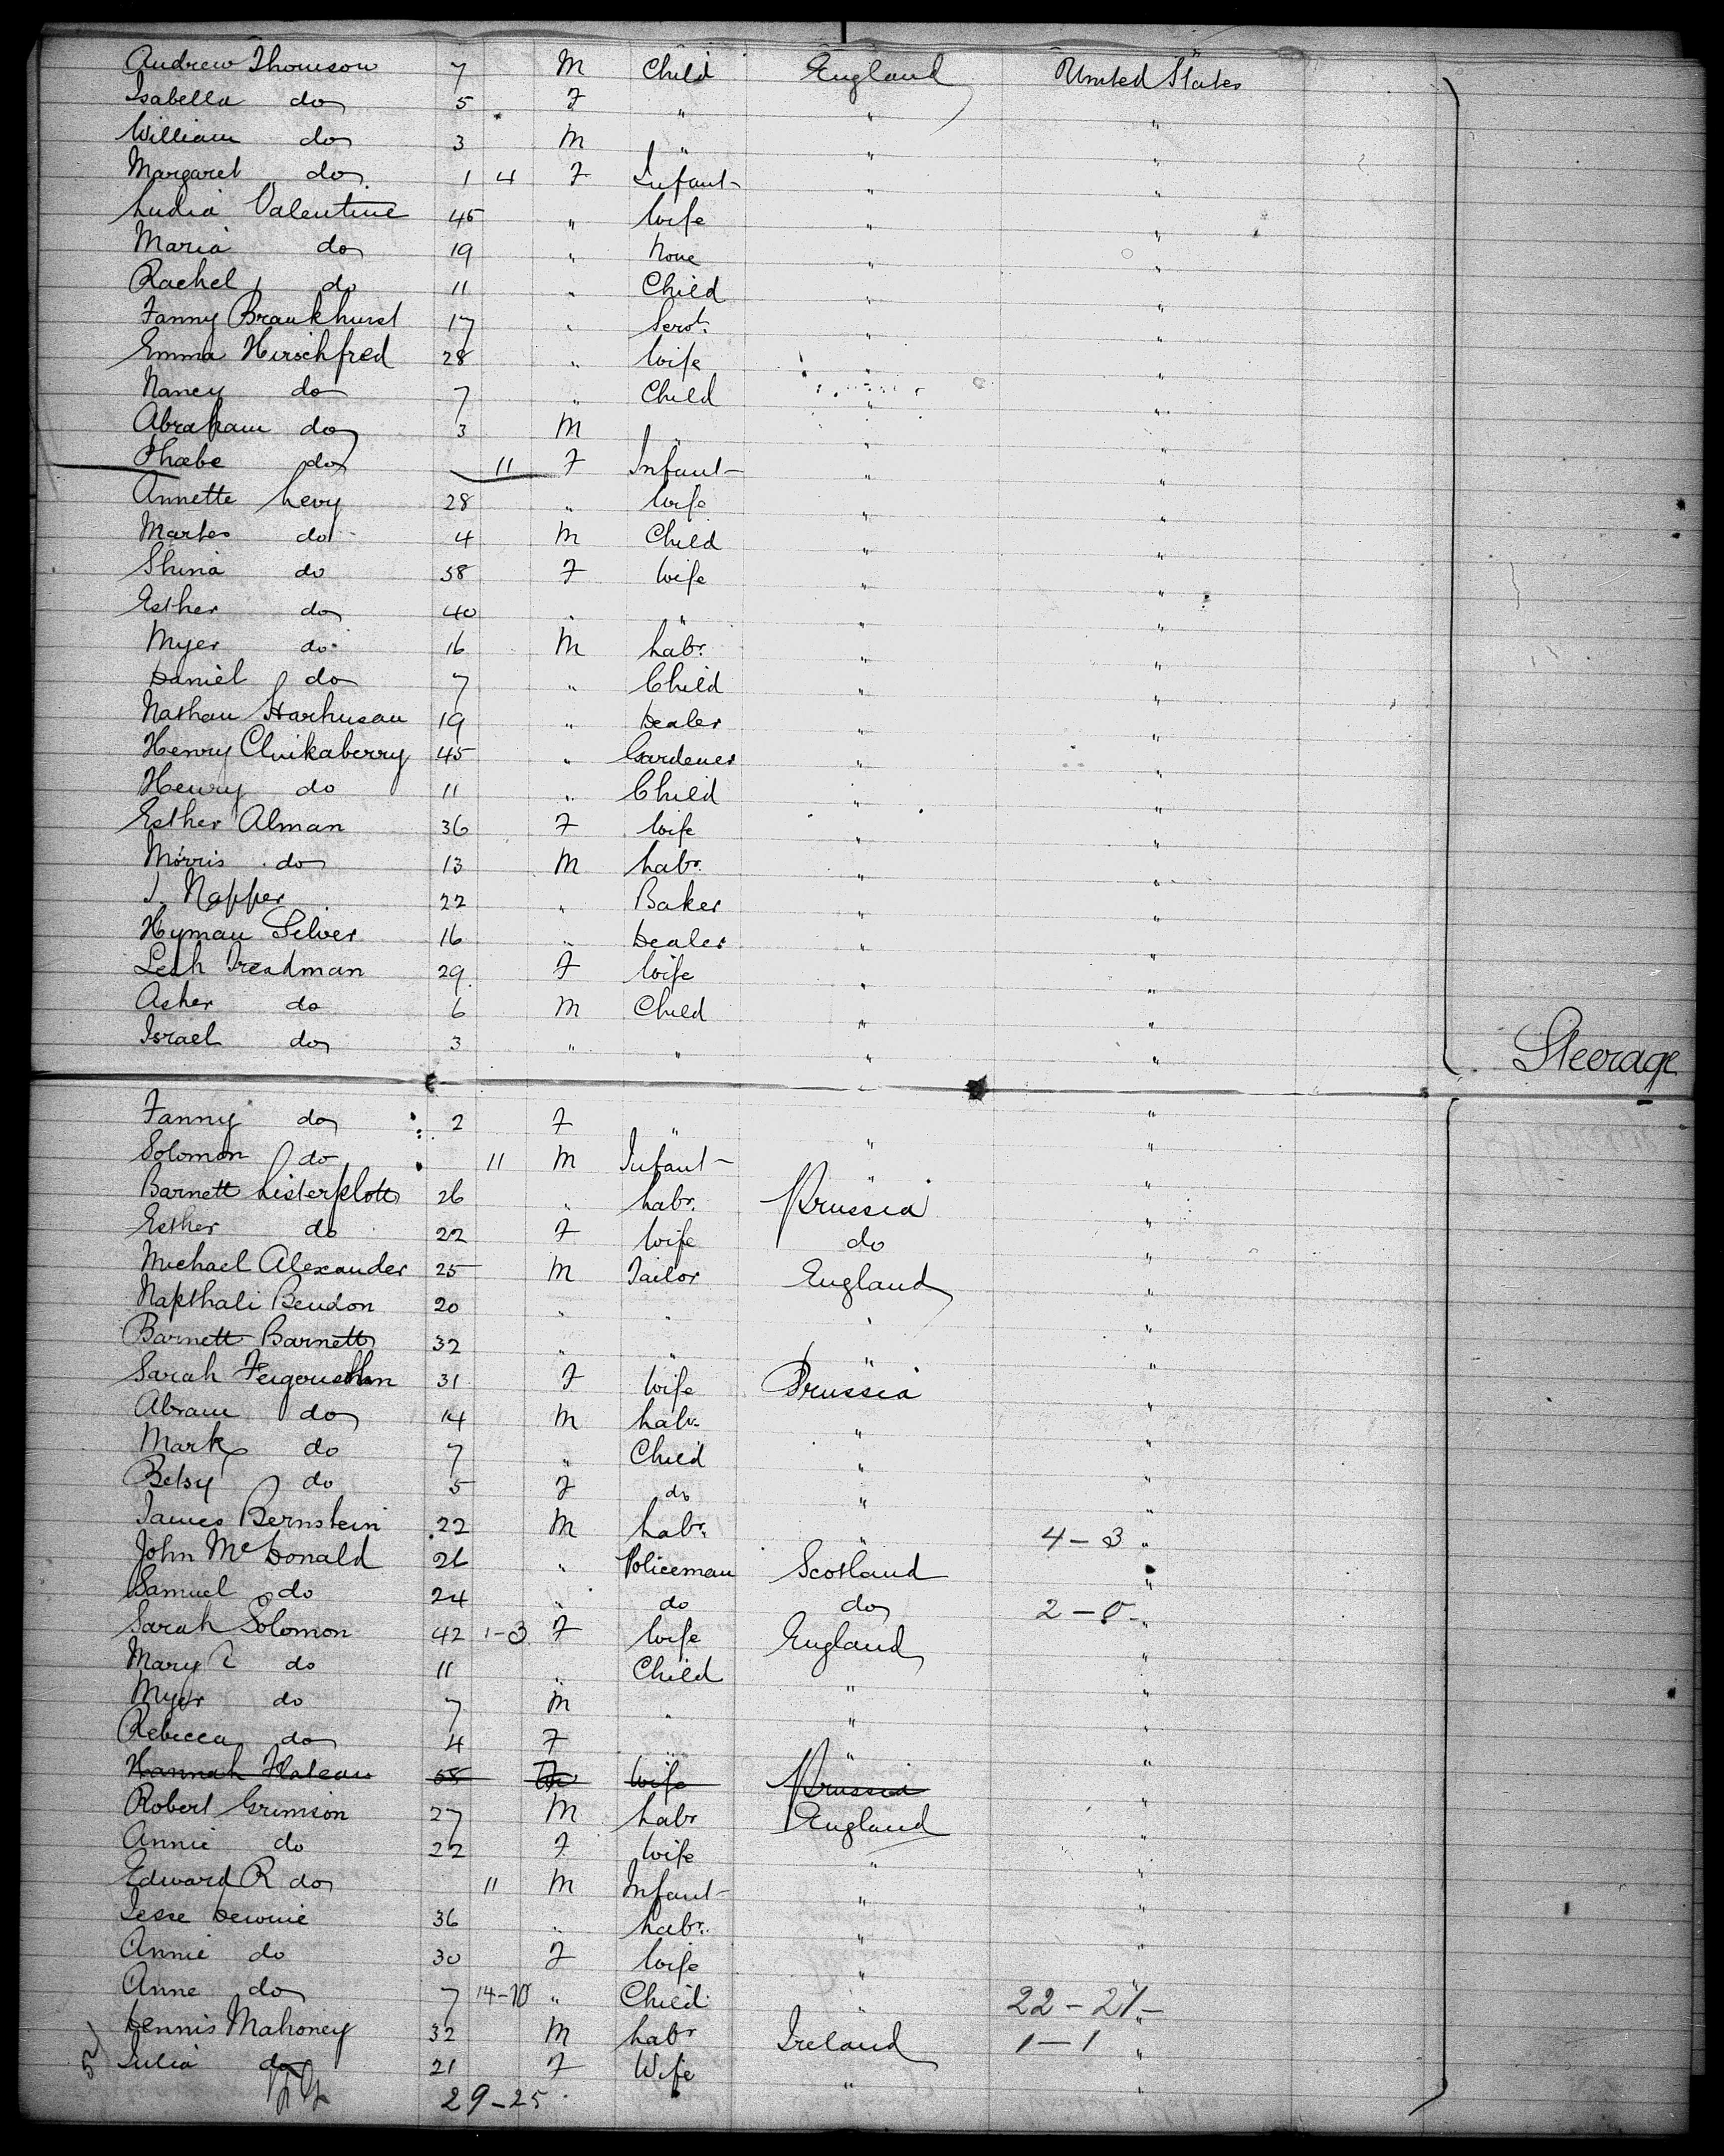 Andrew Thomson 7 M Child England United States
Isabella do 5 F " " "
William do 3 M " " "
Margaret do 1 4 F Infant " "
Ludia Valentine 45 " Wife " "
Maria do 19 " None " "
Rachel do 11 " Child " "
Fanny Brankhurst 17 " Servt. " "
Emma Hirschfred 28 " Wife " "
Nancy do 7 " Child " "
Abraham do 3 M " " "
Phœbe do 11 F Infant " "
Annette Levy 28 " Wife " "
Martes do 4 M Child " "
Shina do 38 F Wife " "
Esther do 40 " " " "
Myer do 16 M Labr. " "
Daniel do 7 " Child " "
Nathan Harhusan 19 " Dealer " "
Henry Cluikaberry 45 " Gardener " "
Henry do 11 " Child " "
Esther Alman 36 F Wife " "
Morris do 13 M Labr. " "
J. Napper 22 " Baker " "
Hyman Silver 16 " Dealer " "
Leah Treadman 29 F Wife " "
Asher do 6 M Child " "
Israel do 3 " " " "
Steerage
Fanny do 2 F " " "
Solomon do 11 M Infant " "
Barnett Listerplott 26 " Labr. Prussia "
Esther do 22 F Wife do "
Michael Alexander 25 M Tailor England "
Napthali Bendon 20 " " " "
Barnett Barnett 32 " " " "
Sarah 31 F Wife Prussia "
Abram do 14 M Labr. " "
Mark do 7 " Child " "
Betsy do 5 F do " "
James Bernstein 22 M Labr. " 4-3 "
John McDonald 26 " Policeman Scotland "
Samuel do 24 " do do 2-0 "
Sarah Solomon 42 1-3 F Wife England "
Mary do 11 " Child " "
Myer do 7 M " " "
Rebecca do 4 F " " "
Hannah Flateau 58 Wife Prussia "
Robert Grimson 27 M Labr England "
Annie do 22 F Wife " "
Edward R do 11 M Infant " "
Jesse Dewnie 36 " Labr. " "
Annie do 30 F Wife " "
Anne do 7 14-10 " Child " 22-21 "
Dennis Mahoney 32 M Labr Ireland 1-1 "
Julia do 21 F Wife " "
29-25